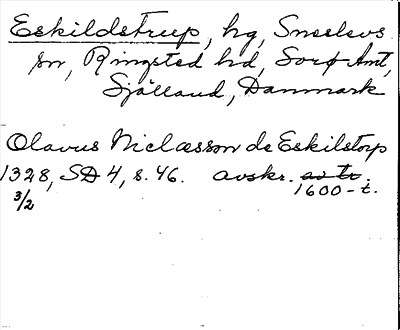 Eskildstrup, hg, Sneslevs
sn, Ringsted hd, Sorø Amt,
Själland, Danmark
Olavus Niclæsson de Eskilstorp
1328, SD 4, s. 46. avskr.
1600-t.
3/2